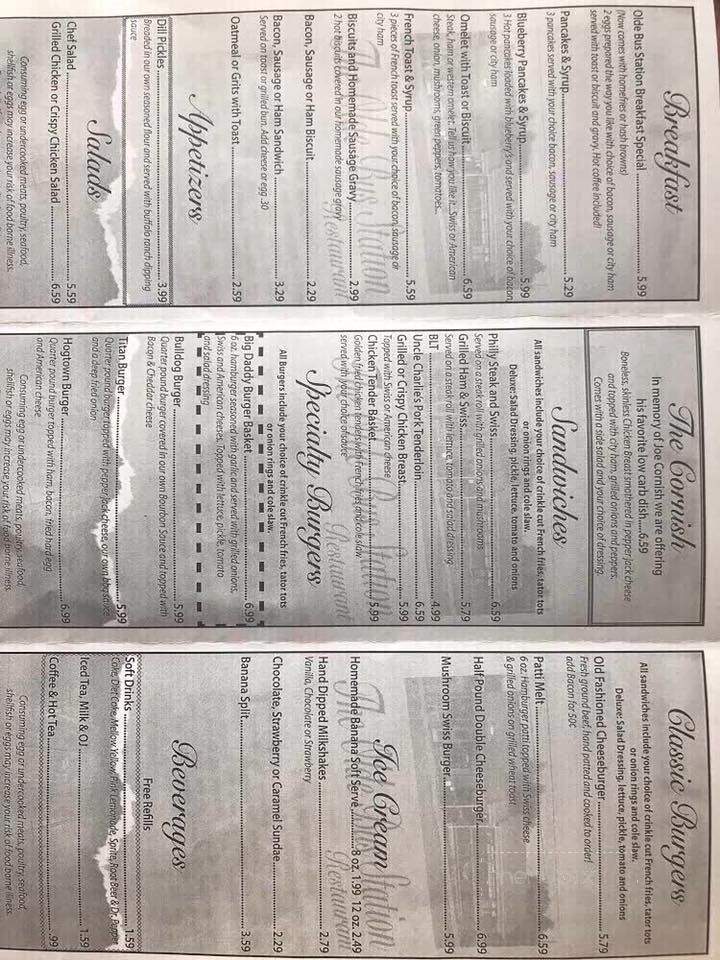 Breakfast
Olde Bus Station Breakfast Special 5.99
(Now comes with homefries or hash browns)
2 eggs prepared the way you like with choice of bacon, sausage or city ham
served with toast or biscuit and gravy. Hot coffee included!
Pancakes & Syrup 5.29
3 pancakes served with your choice bacon, sausage or city ham
Blueberry Pancakes & Syrup 5.99
3 Hot pancakes loaded with blueberry's and served with your choice of bacon,
sausage or city ham
Omelet with Toast or Biscuit 6.59
Steak, ham or western omelet. Tell us how you like it...Swiss or American
cheese, onion, mushrooms, green peppers, tomatoes...
French Toast & Syrup 5.59
3 pieces of French toast served with your choice of bacon, sausage or
city ham
Biscuits and Homemade Sausage Gravy 2.99
2 hot biscuits covered in our homemade sausage gravy
Bacon, Sausage or Ham Biscuit 2.29
Bacon, Sausage or Ham Sandwich 3.29
Served on toast or grilled bun. Add cheese or egg .30
Oatmeal or Grits with Toast 2.59
Appetizers
Dill Pickles 3.99
Breaded in our own seasoned flour and served with buffalo ranch dipping
sauce
Salads
Chef Salad 5.59
Grilled Chicken or Crispy Chicken Salad 6.59
Consuming egg or undercooked meats, poultry, seafood,
shellfish or eggs may increase your risk of food borne illness.
The Cornish
In memory of Joe Cornish we are offering
his favorite low carb dish.....6.59
Boneless, skinless Chicken Breast smothered in pepper jack cheese
and topped with city ham, grilled onions and peppers.
Comes with a side salad and your choice of dressing.
Sandwiches
All sandwiches include your choice of crinkle cut French fries, tator tots
or onion rings and cole slaw.
Deluxe: Salad Dressing, pickle, lettuce, tomato and onions
Philly Steak and Swiss 6.59
Served on a steak roll with grilled onions and mushrooms
Grilled Ham & Swiss 5.79
Served on a steak roll with lettuce, tomato and salad dressing
BLT 4.99
Uncle Charlie's Pork Tenderloin 6.59
Grilled or Crispy Chicken Breast 5.99
Topped with Swiss or American cheese
Chicken Tender Basket 5.99
Golden fried chicken tenders with French fries and cole slaw
served with your choice of sauce
Specialty Burgers
All Burgers include your choice of crinkle cut French fries, tator tots
or onion rings and cole slaw.
Big Daddy Burger Basket 6.99
6 oz. hamburger seasoned with garlic and served with grilled onions,
Swiss and American cheeses. Topped with lettuce, pickle, tomato
and salad dressing
Bulldog Burger 5.99
Quarter pound burger covered in our own Bourbon Sauce and topped with
Bacon & Cheddar cheese
Titan Burger 5.99
Quarter pound burger topped with pepper jack cheese, our own bbq sauce
and a deep fried onion
Hogtown Burger 6.99
Quarter pound burger topped with ham, bacon, fried hard egg
and American cheese
Consuming egg or undercooked meats, poultry, seafood,
shellfish or eggs may increase your risk of food borne illness.
Classic Burgers
All sandwiches include your choice of crinkle cut French fries, tator tots
or onion rings and cole slaw.
Deluxe: Salad Dressing, lettuce, pickle, tomato and onions
Old Fashioned Cheeseburger 5.79
Fresh ground beef, hand patted and cooked to order!
add Bacon for 50¢
Patti Melt 6.59
6 oz. Hamburger patti topped with Swiss cheese
& grilled onions on grilled wheat toast
Half Pound Double Cheeseburger 6.99
Mushroom Swiss Burger 5.99
Ice Cream
Homemade Banana Soft Serve 8 oz. 1.99 12 oz. 2.49
Hand Dipped Milkshakes 2.79
Vanilla, Chocolate or Strawberry
Chocolate, Strawberry or Caramel Sundae 2.29
Banana Split 3.59
Beverages
Free Refills
Soft Drinks 1.59
Coke, Diet Coke, Mellow Yellow, Pink Lemonade, Sprite, Root Beer & Dr. Pepper
Iced Tea, Milk & OJ 1.59
Coffee & Hot Tea .99
Consuming egg or undercooked meats, poultry, seafood,
shellfish or eggs may increase your risk of food borne illness.